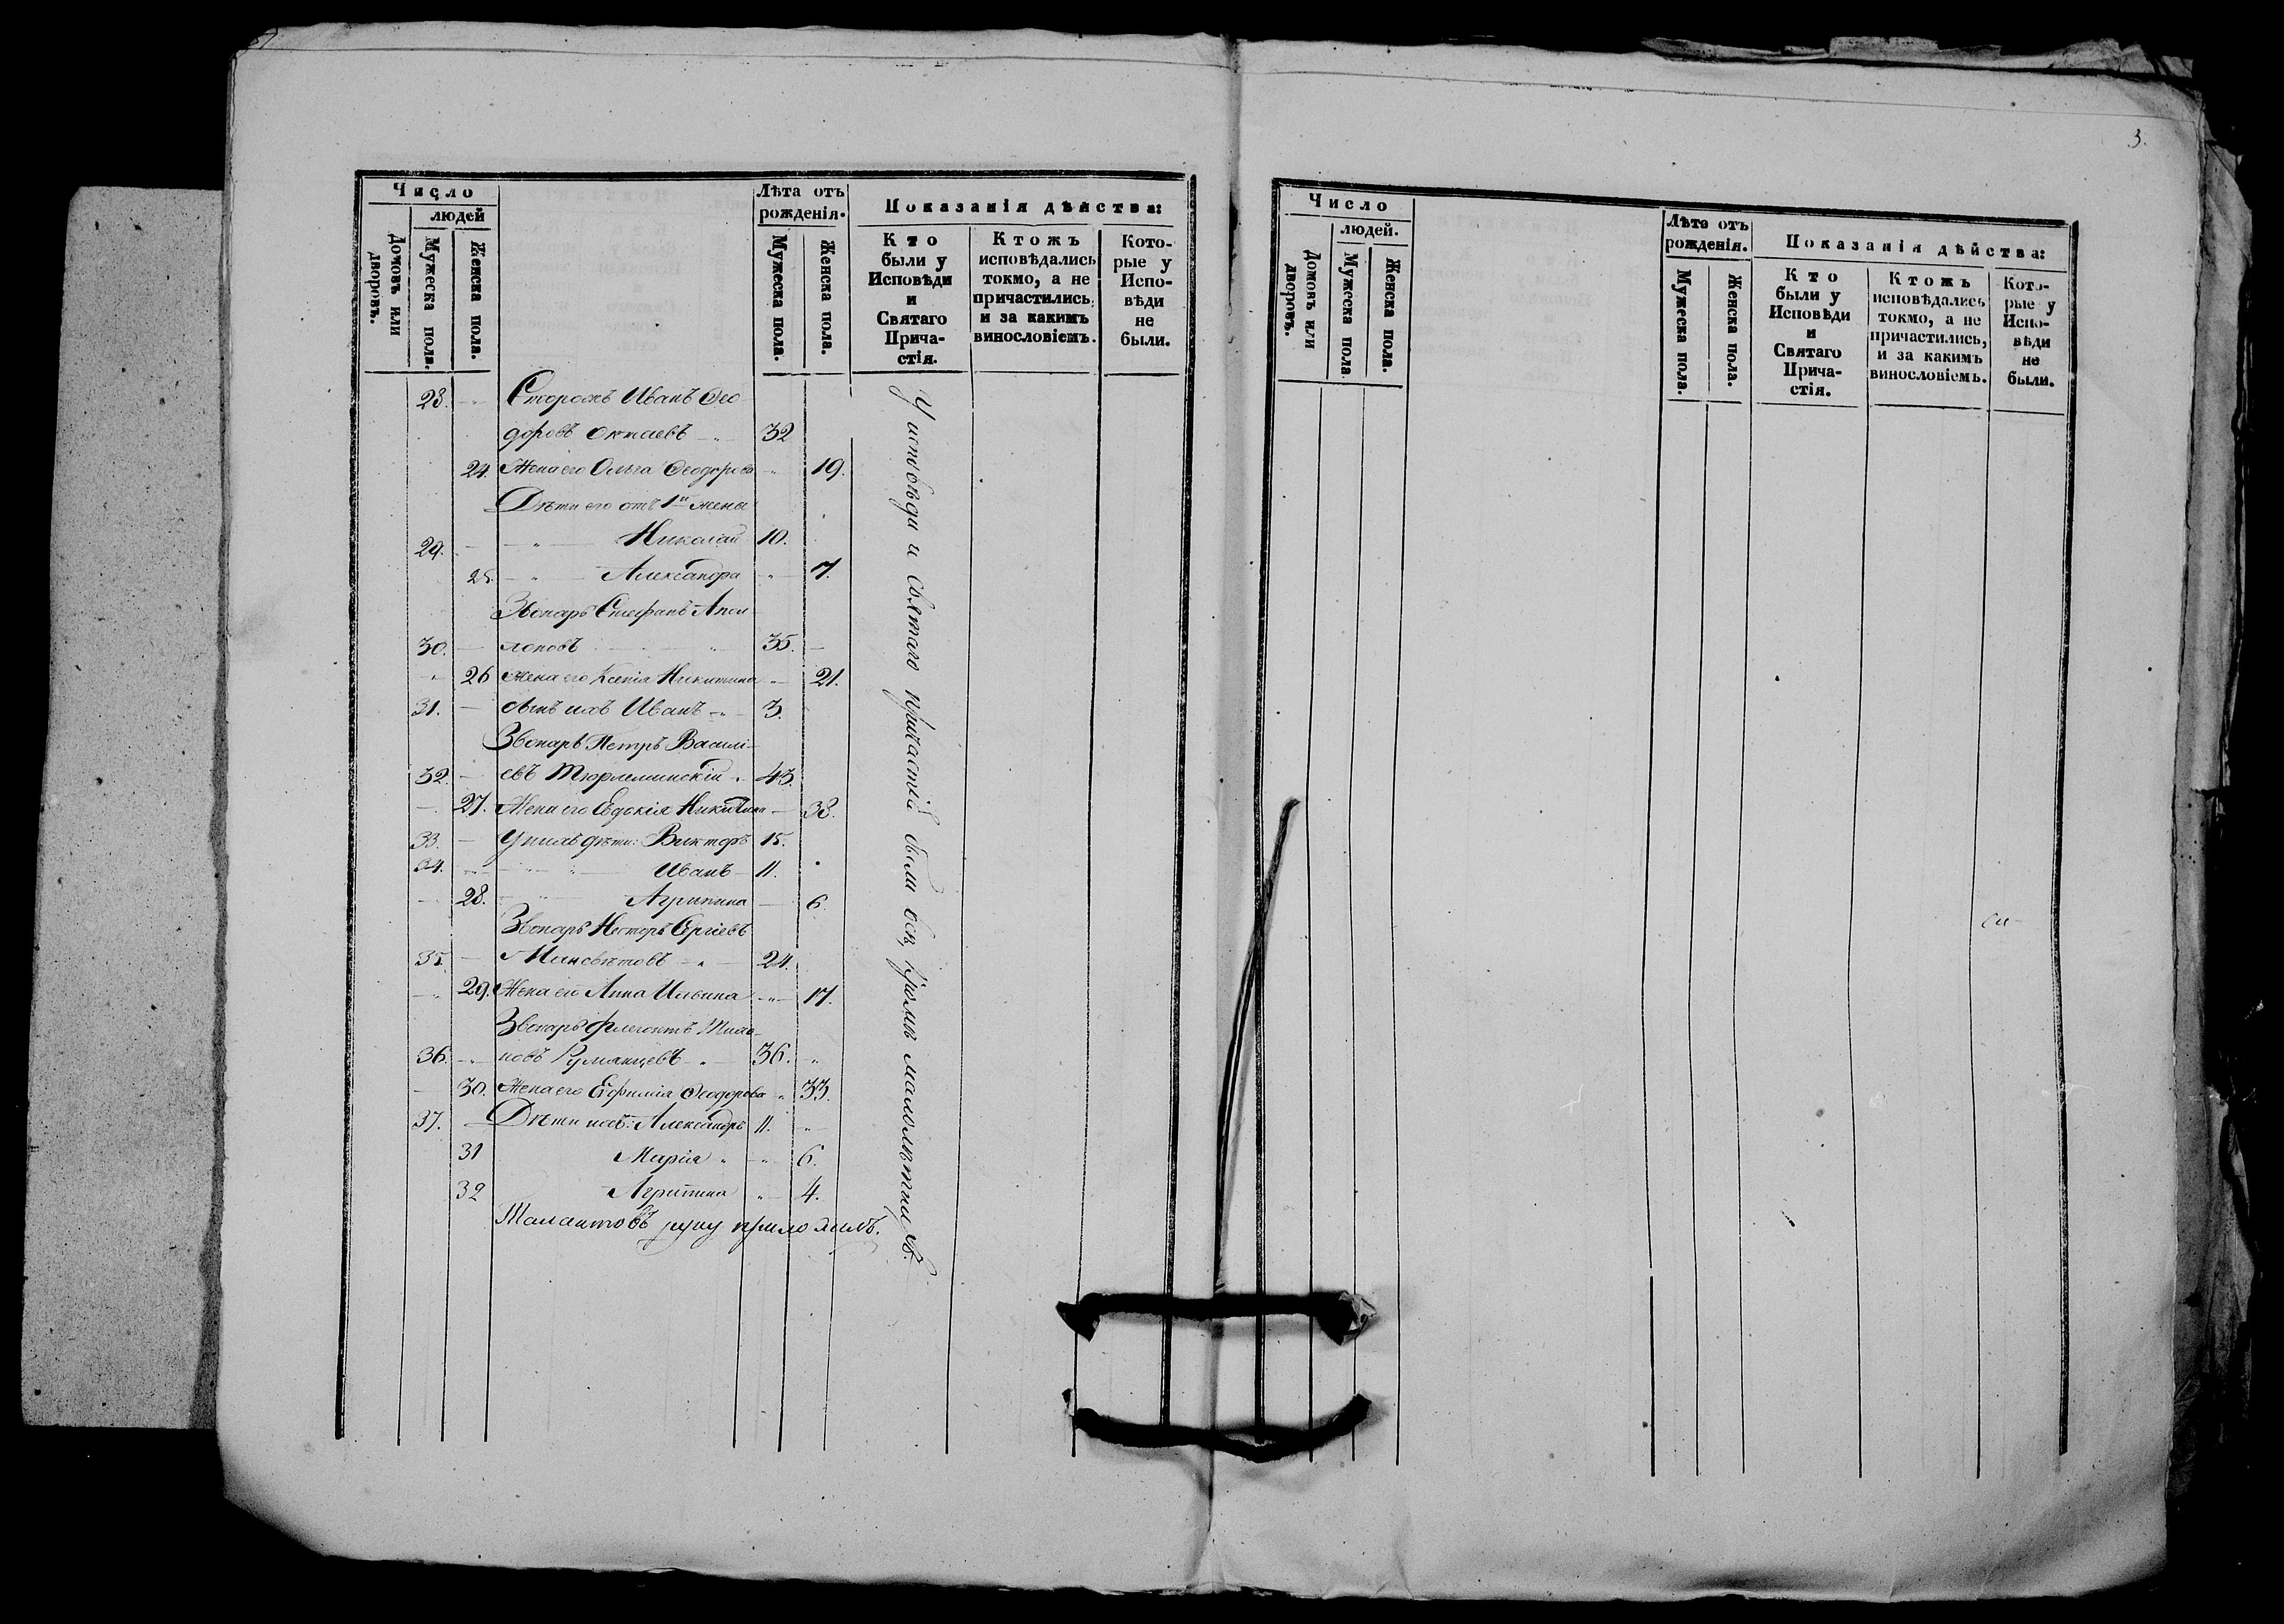 Число
людей
Домовъ или дворовъ.
Мужеска пола.
Женска пола.
Лѣта отъ рожденія.
Мужеска пола.
Женска пола.
Показанія дѣйства:
Кто были у Исповѣди и Святаго Прича-стія.
Ктожъ исповѣдались токмо, а не причастились, и за какимъ винословіемъ.
Кото-рые у Испо-вѣди не были.
28. Сторожъ Иванъ Ѳео-
доровъ 32
24. Жена его Ольга Ѳеодорова 19.
Дѣти его отъ 1й жены
29. Николай 10.
25. Александра 7.
Звонарь Стефанъ
30. 35.
26 Жена его Ксенія Никитина 21.
31. Сынъ ихъ Иванъ 3.
Звонарь Петръ Василі-
32. евъ Тюрлеминскій 43.
27. Жена его Евдокія Никитина 38.
33. У нихъ дѣти: Викторъ 15.
34. Иванъ 11.
28. Агрипина 6.
Звонарь Несторъ Сргіевъ
35. Минсвѣтовъ 24.
29. Жена его Анна Ильина 17.
Звонарь Флегонтъ
36. новъ Румянцевъ 36.
30. Жена его Ефимія Ѳеодорова 33.
37. Дѣти ихъ: Александръ 11.
31 Марія 6.
32 Агрипина 4.
Талантовъ руку приложилъ.
У исповѣди и святаго причастія были всѣ, кромѣ малолѣтнихъ.
3.
Число
людей.
Домовъ или дворовъ.
Мужеска пола.
Женска пола.
Лѣта отъ рожденія.
Мужеска пола.
Женска пола.
Показанія дѣйства:
Кто были у Исповѣди и Святаго Прича-стія.
Ктожъ исповѣдались токмо, а не причастились, и за какимъ винословіемъ.
Кото-рые у Испо-вѣди не были.